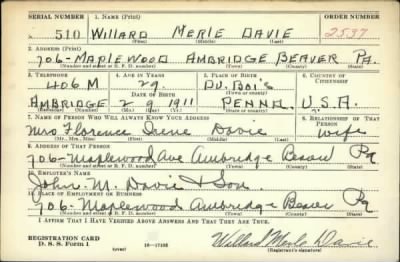 SERIAL NUMBER 1. NAME (Print) ORDER NUMBER
510 WILLARD MERLE DAVIE 2537
(First) (Middle) (Last)
2. ADDRESS (Print)
706-MAPLEWOOD AMBRIDGE BEAVER Pa.
(Number and street or R. F. D. number) (Town) (County) (State)
3. TELEPHONE 4. AGE IN YEARS 5. PLACE OF BIRTH 6. COUNTRY OF CITIZENSHIP
406 M 29 DU.BOIS
DATE OF BIRTH (Town or county)
AMBRIDGE 2 9 1911 PENNA. U.S.A.
(Exchange) (Number) (Mo.) (Day) (Yr.) (State or country)
7. NAME OF PERSON WHO WILL ALWAYS KNOW YOUR ADDRESS 8. RELATIONSHIP OF THAT PERSON
Mrs. Florence Irene Davie wife
(Mr., Mrs., Miss) (First) (Middle) (Last)
9. ADDRESS OF THAT PERSON
706-Maplewood Ave Ambridge Beaver Pa
(Number and street or R. F. D. number) (Town) (County) (State)
10. EMPLOYER'S NAME
John. M. Davie & Son.
11. PLACE OF EMPLOYMENT OR BUSINESS
706- Maplewood Ambridge Beaver Pa
(Number and street or R. F. D. number) (Town) (County) (State)
I AFFIRM THAT I HAVE VERIFIED ABOVE ANSWERS AND THAT THEY ARE TRUE.
REGISTRATION CARD
D. S. S. Form 1 (over) 16—17105 Willard Merle Davie
(Registrant's signature)